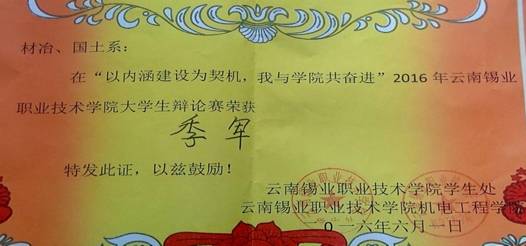 材冶、国土系：
在“以内涵建设为契机，我与学院共奋进”2016年云南锡业
职业技术学院大学生辩论赛荣获
季军
特发此证，以兹鼓励！
云南锡业职业技术学院学生处
云南锡业职业技术学院机电工程学院
0一六年六月一日